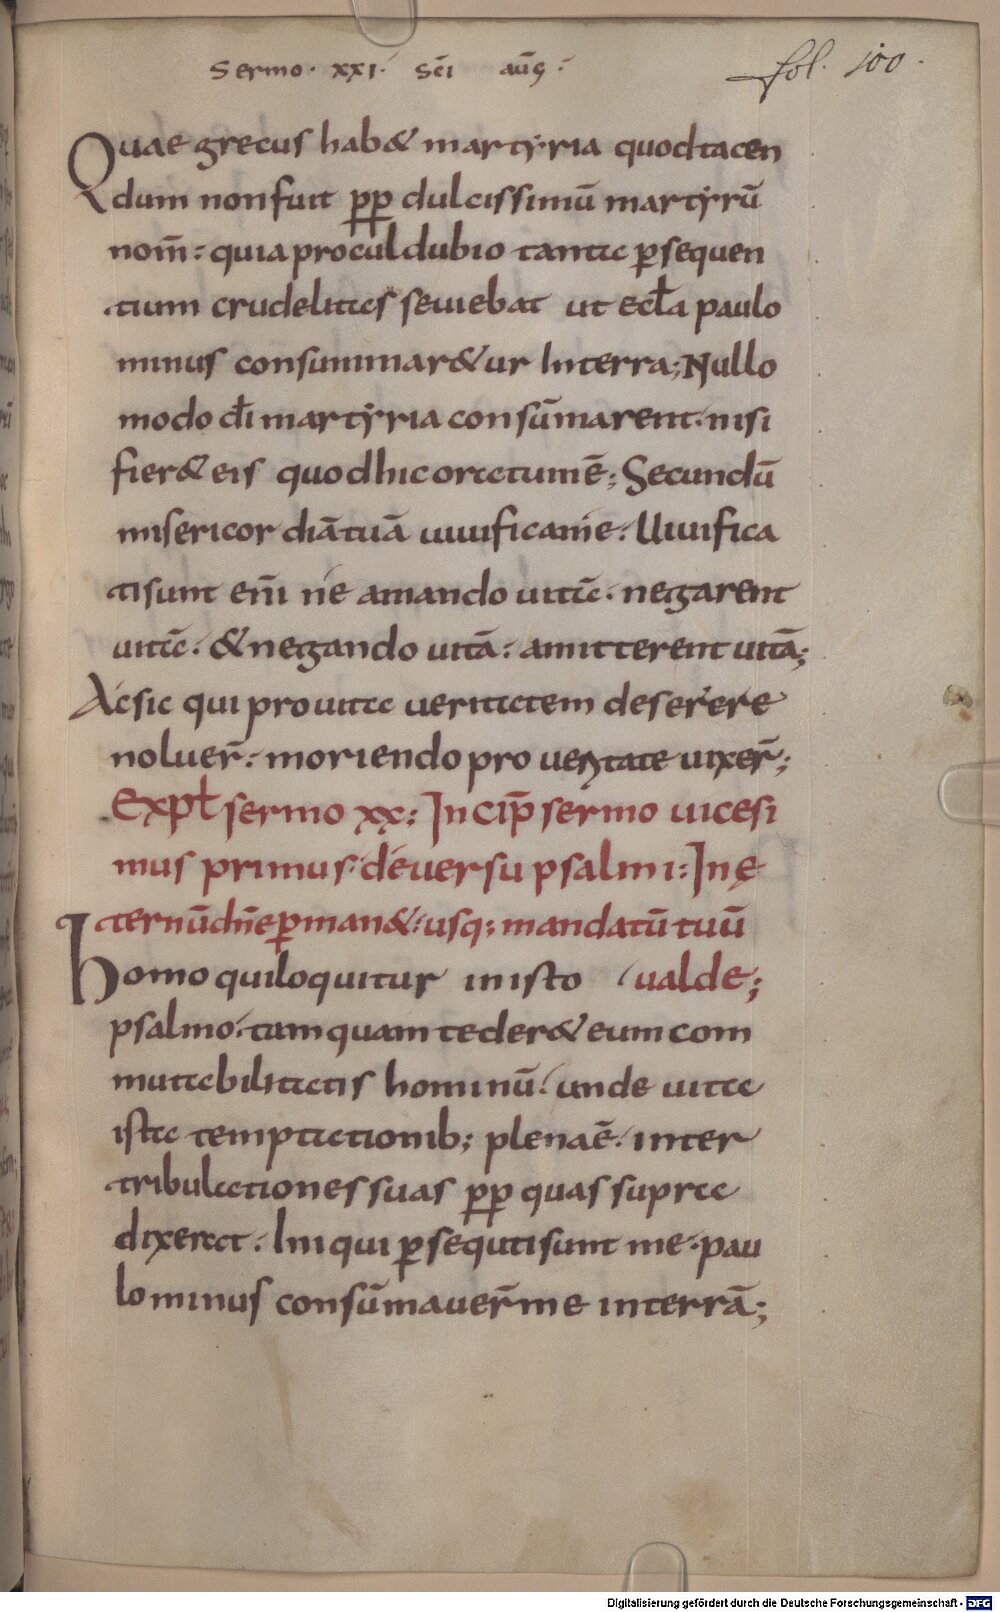 Sermo · xxi · Sc̄i auḡ :
fol. 100.
Quae grecus hab& martyria quod tacen
dum non fuit ꝓꝓ dulcissimū martyrū
nom̄: quia procul dubio tanta ꝑsequen
tium crudelitas seuiebat ut eccła paulo
minus consummar&ur In terra; Nullo
modo di martyria consūmarent · nisi
fier& eis quod hic oratum ē; Secundū
misericordiā tuā uiuifica me: Uiuifica
ti sunt eni ne amando uita · negarent
uita · & negando uitā: amitterent uitā;
Ac sic qui pro uita ueritatem deserere
noluer̄: moriendo pro ueritate uixer̄;
Explt sermo xx: Incip̄ sermo uicesi
mus primus · de uersu psalmi: In ę
ternū dn̄e ꝑman& : usq; mandatū tuū
Homo qui loquitur in isto ualde;
psalmo · tamquam teder& eum com
mutabilitatis hominū · unde uita
ista temptationib; plena ē · inter
tribulationes suas ꝓꝓ quas supra
dixerat · Iniqui ꝑsequti sunt me · pau
lo minus consūmauer̄ me in terrā;
Digitalisierung gefördert durch die Deutsche Forschungsgemeinschaft - DFG